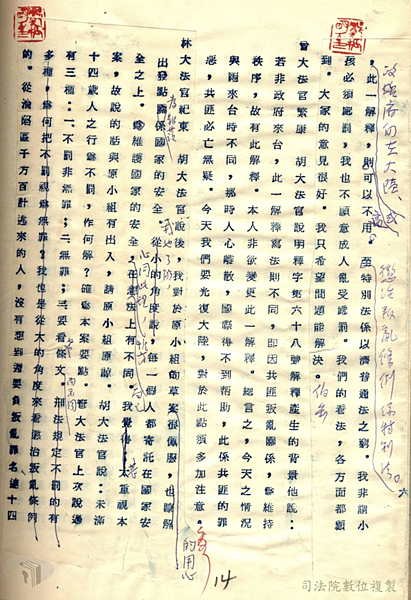 ，此一解釋，則可以不用。至特別法係以濟普通法之窮。我非謂小
孩必須處罰，我也不願意成人亂受處罰。我們的看法，各方面都顧
到。大家的意見很好。我只希望問題能解決。
曾大法官繁康　胡大法官說明釋字第六十八號解釋產生的背景他說：
若非政府來台，此一解釋寫法則不同，即因共匪叛亂關係，為維持
秩序，故有此解釋。本人非欲變更此一解釋。總言之，今天之情況
與剛來台時不同，那時人心離散，國際得不到幫助，此係共匪的罪
惡，共匪必亡無疑。今天我們要光復大陸，對於此點須多加注意。
林大法官紀東　胡大法官說後，我對於原小組的草案很佩服，也瞭解
的用心
出發點關係國家的安全。從小的角度說，每一個人都寄託在國家安
全之上。為維護國家的安全，在意法上有不同。我覺得太重視本
案，故說的話與原小組有出入，請原小組原諒。胡大法官說：未滿
十四歲人之行為不罰，作何解？確為本案要點。曾大法官上次說過
有三種：一、不罰非無罪；二、無罪；三、要看條文。刑法規定不罰的有
多種，為何把不罰視為無罪？我也是從大的角度來看懲治叛亂條例
的。從淪陷區千方百計逃來的人，沒有想到還要負叛亂罪名連十四
六
14
司法院數位複製